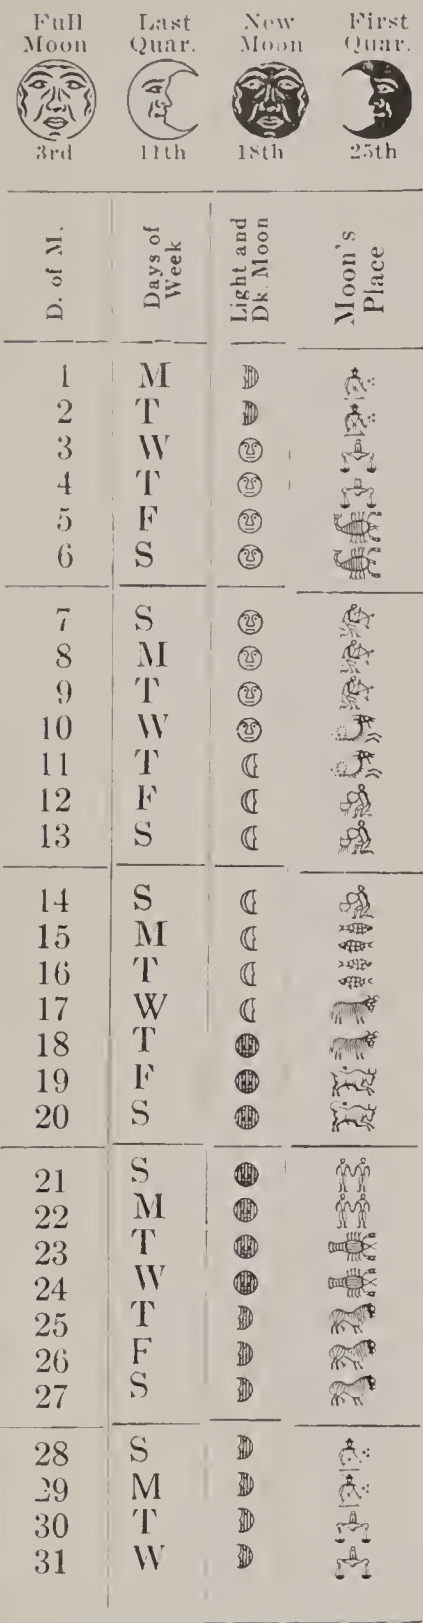 Full Moon Last Quar. New Moon First Quar.
3rd 11th 18th 25th
D. of M. Days of Week Light and Dk. Moon Moon's Place
1 M
2 T
3 W
4 T
5 F
6 S
7 S
8 M
9 T
10 W
11 T
12 F
13 S
14 S
15 M
16 T
17 W
18 T
19 F
20 S
21 S
22 M
23 T
24 W
25 T
26 F
27 S
28 S
29 M
30 T
31 W